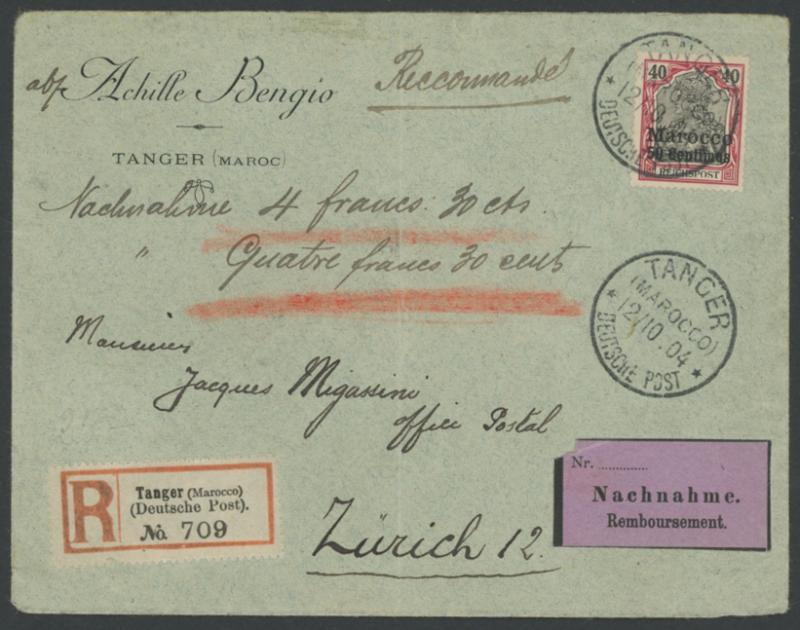 Achille Bengio
Reccommandé
TANGER (MAROC)
40 40
Marocco
50 Centimes
REICHSPOST
TANGER
DEUTSCHE
Nachnahme 4 francs 30 cts.
" Quatre francs 30 cent
TANGER
(MAROCCO)
12/10.04
* DEUTSCHE POST *
Monsieur
Jacques Migassini
Office Postal
Zürich 12.
R
Tanger (Marocco)
(Deutsche Post).
No. 709
Nr.
Nachnahme.
Remboursement.